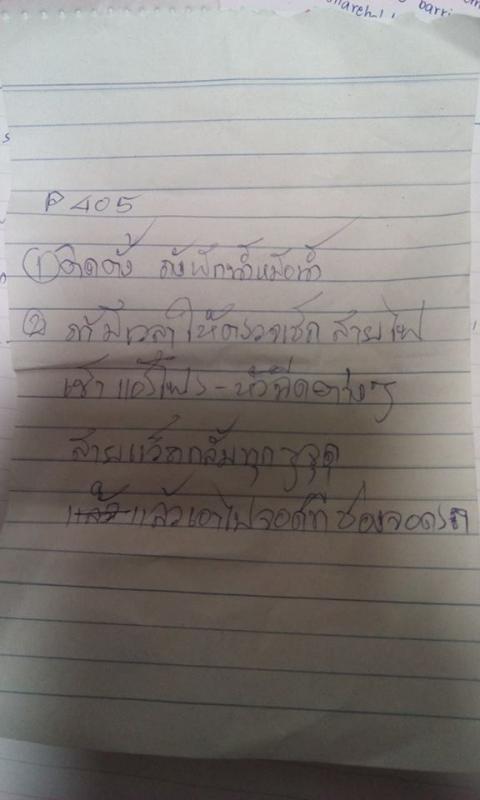 P 405
① ติดตั้ง ถังพักน้ำหม้อน้ำ
② ถ้ามีเวลา ให้ตรวจเช็ก สายไฟ
เช่า แอร์โฟร - หัวฉีดต่างๆ
สายแว็คกลั้มทุกๆจุด
แล้วเอาไปจอดที่ ช่องจอดรถ